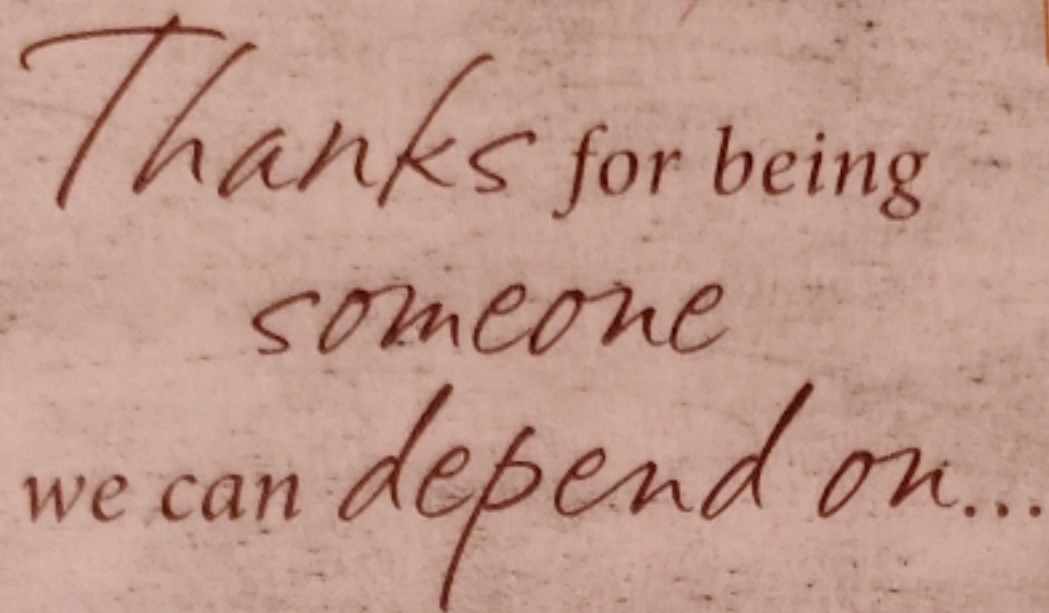 Thanks for being
someone
we can depend on...